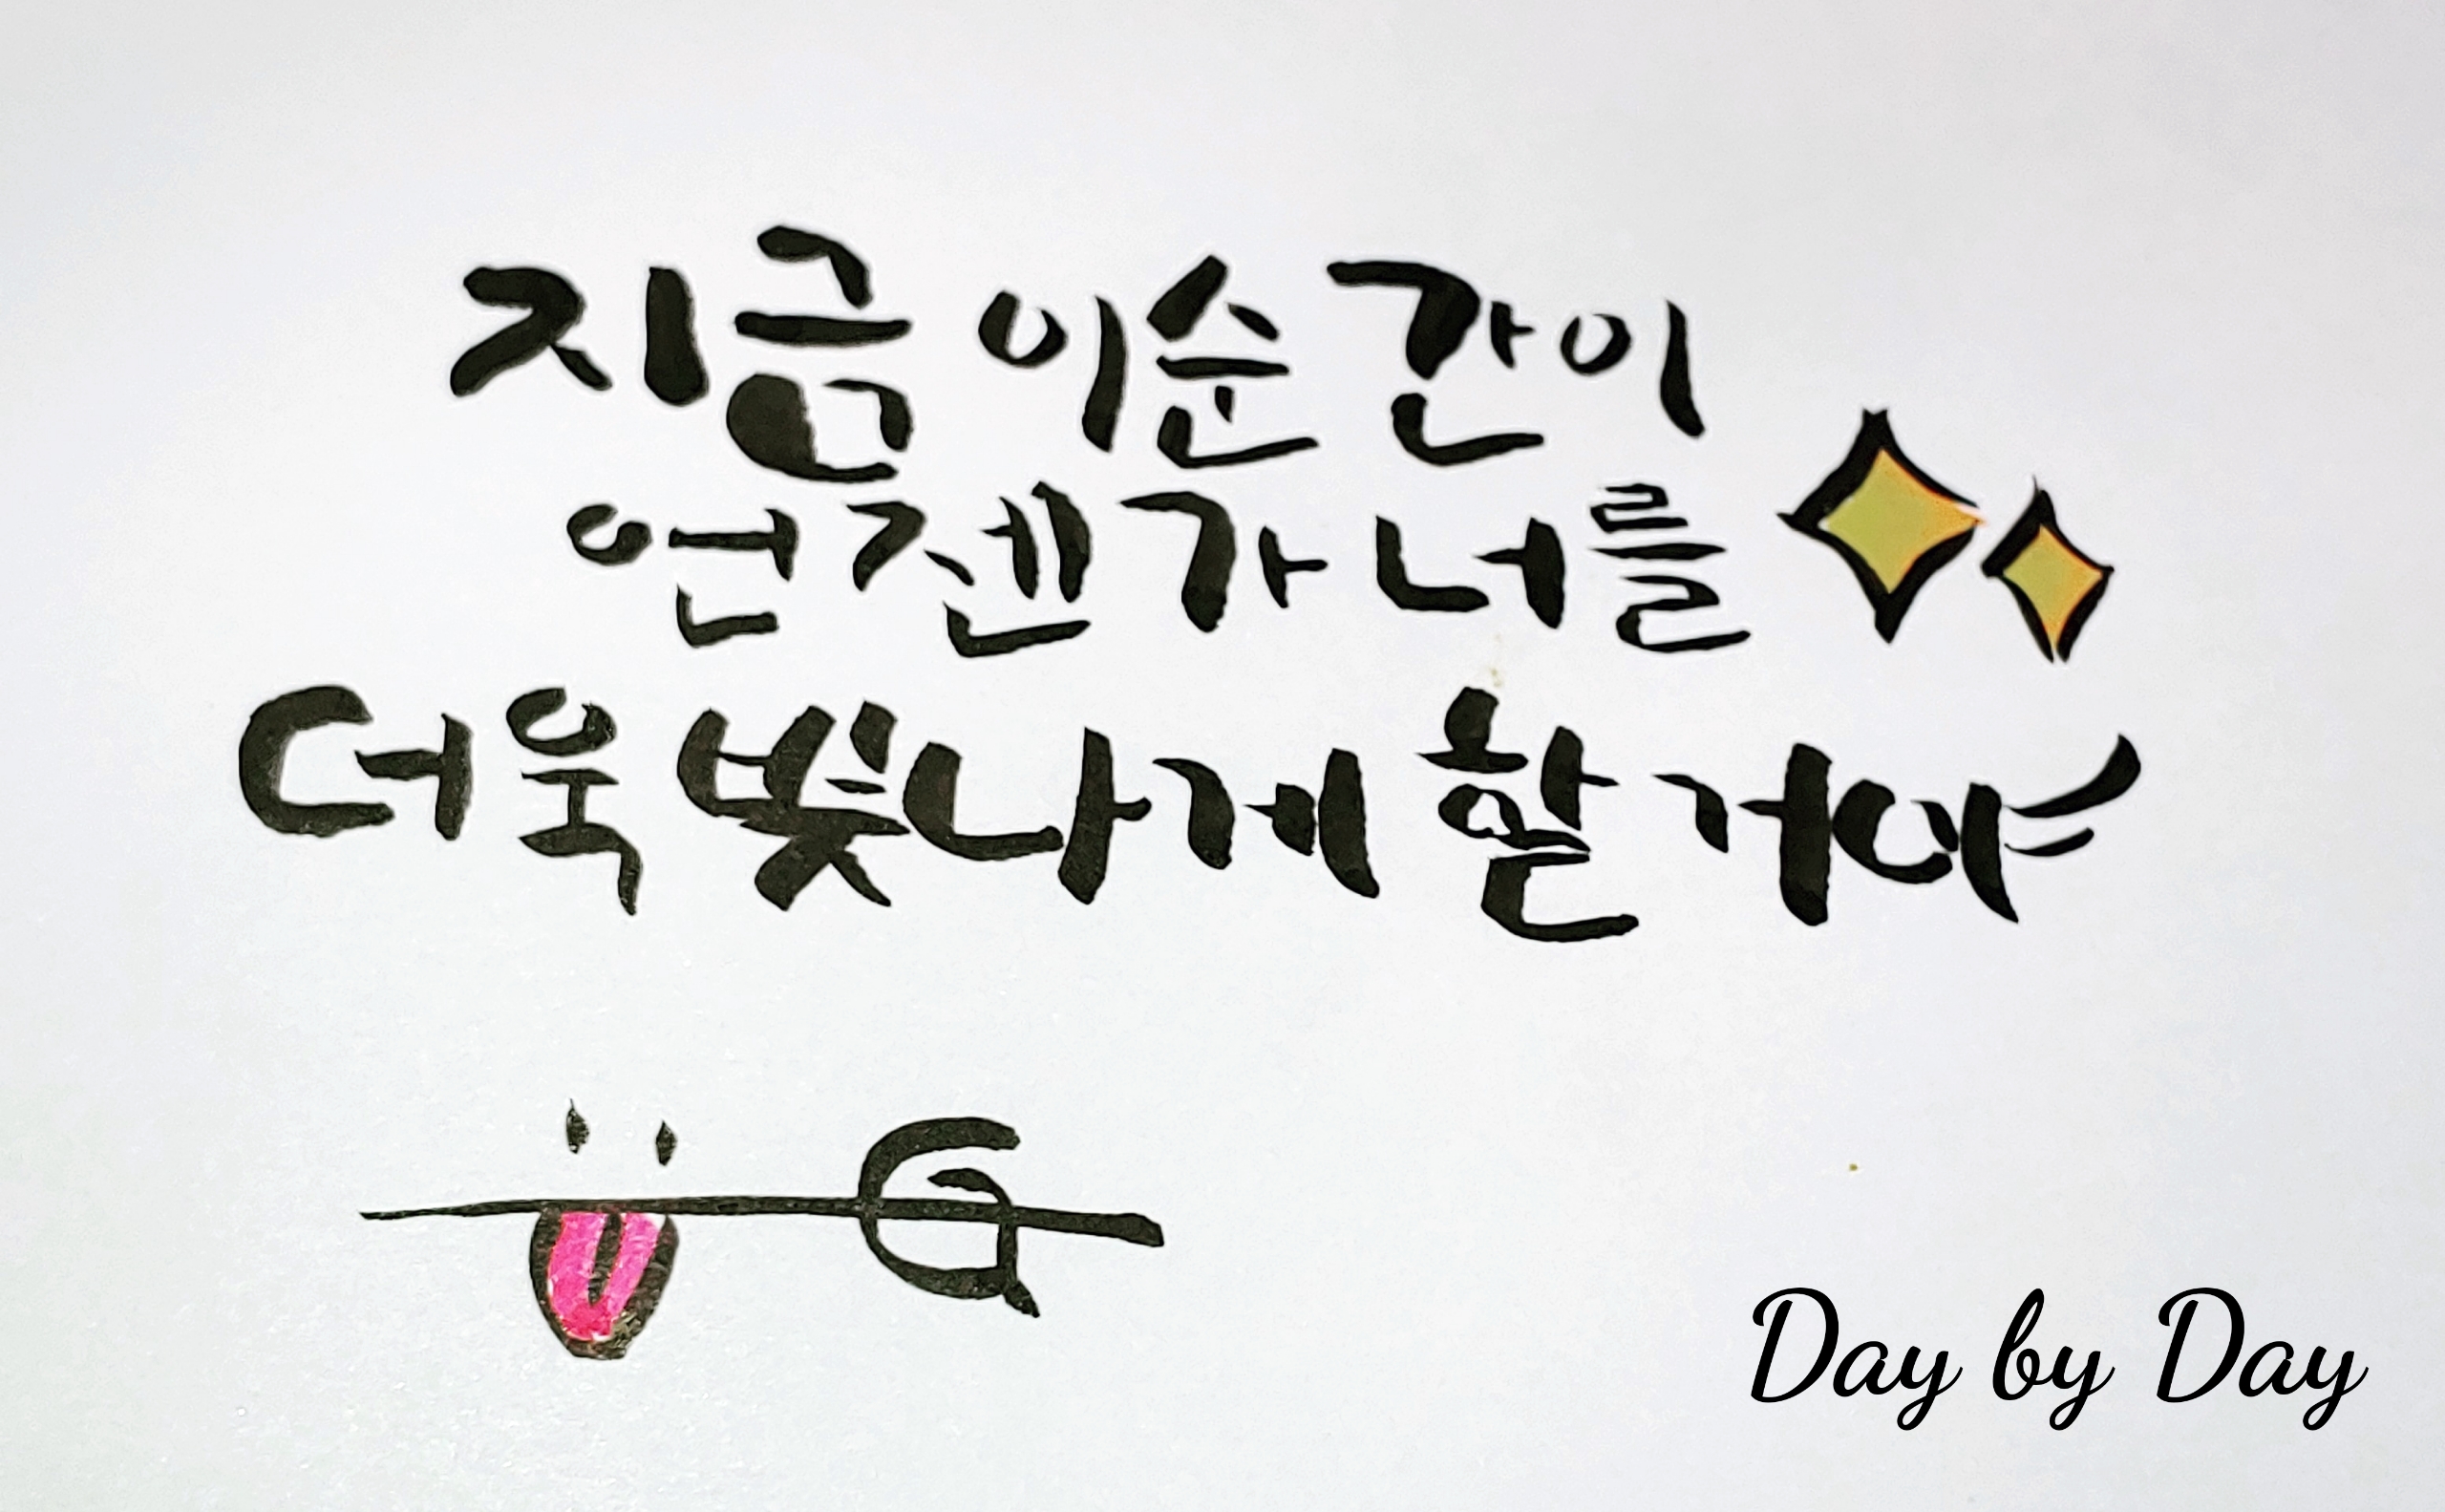 지금 이순간이
언젠가 너를
더욱 빛나게 할거야
Day by Day